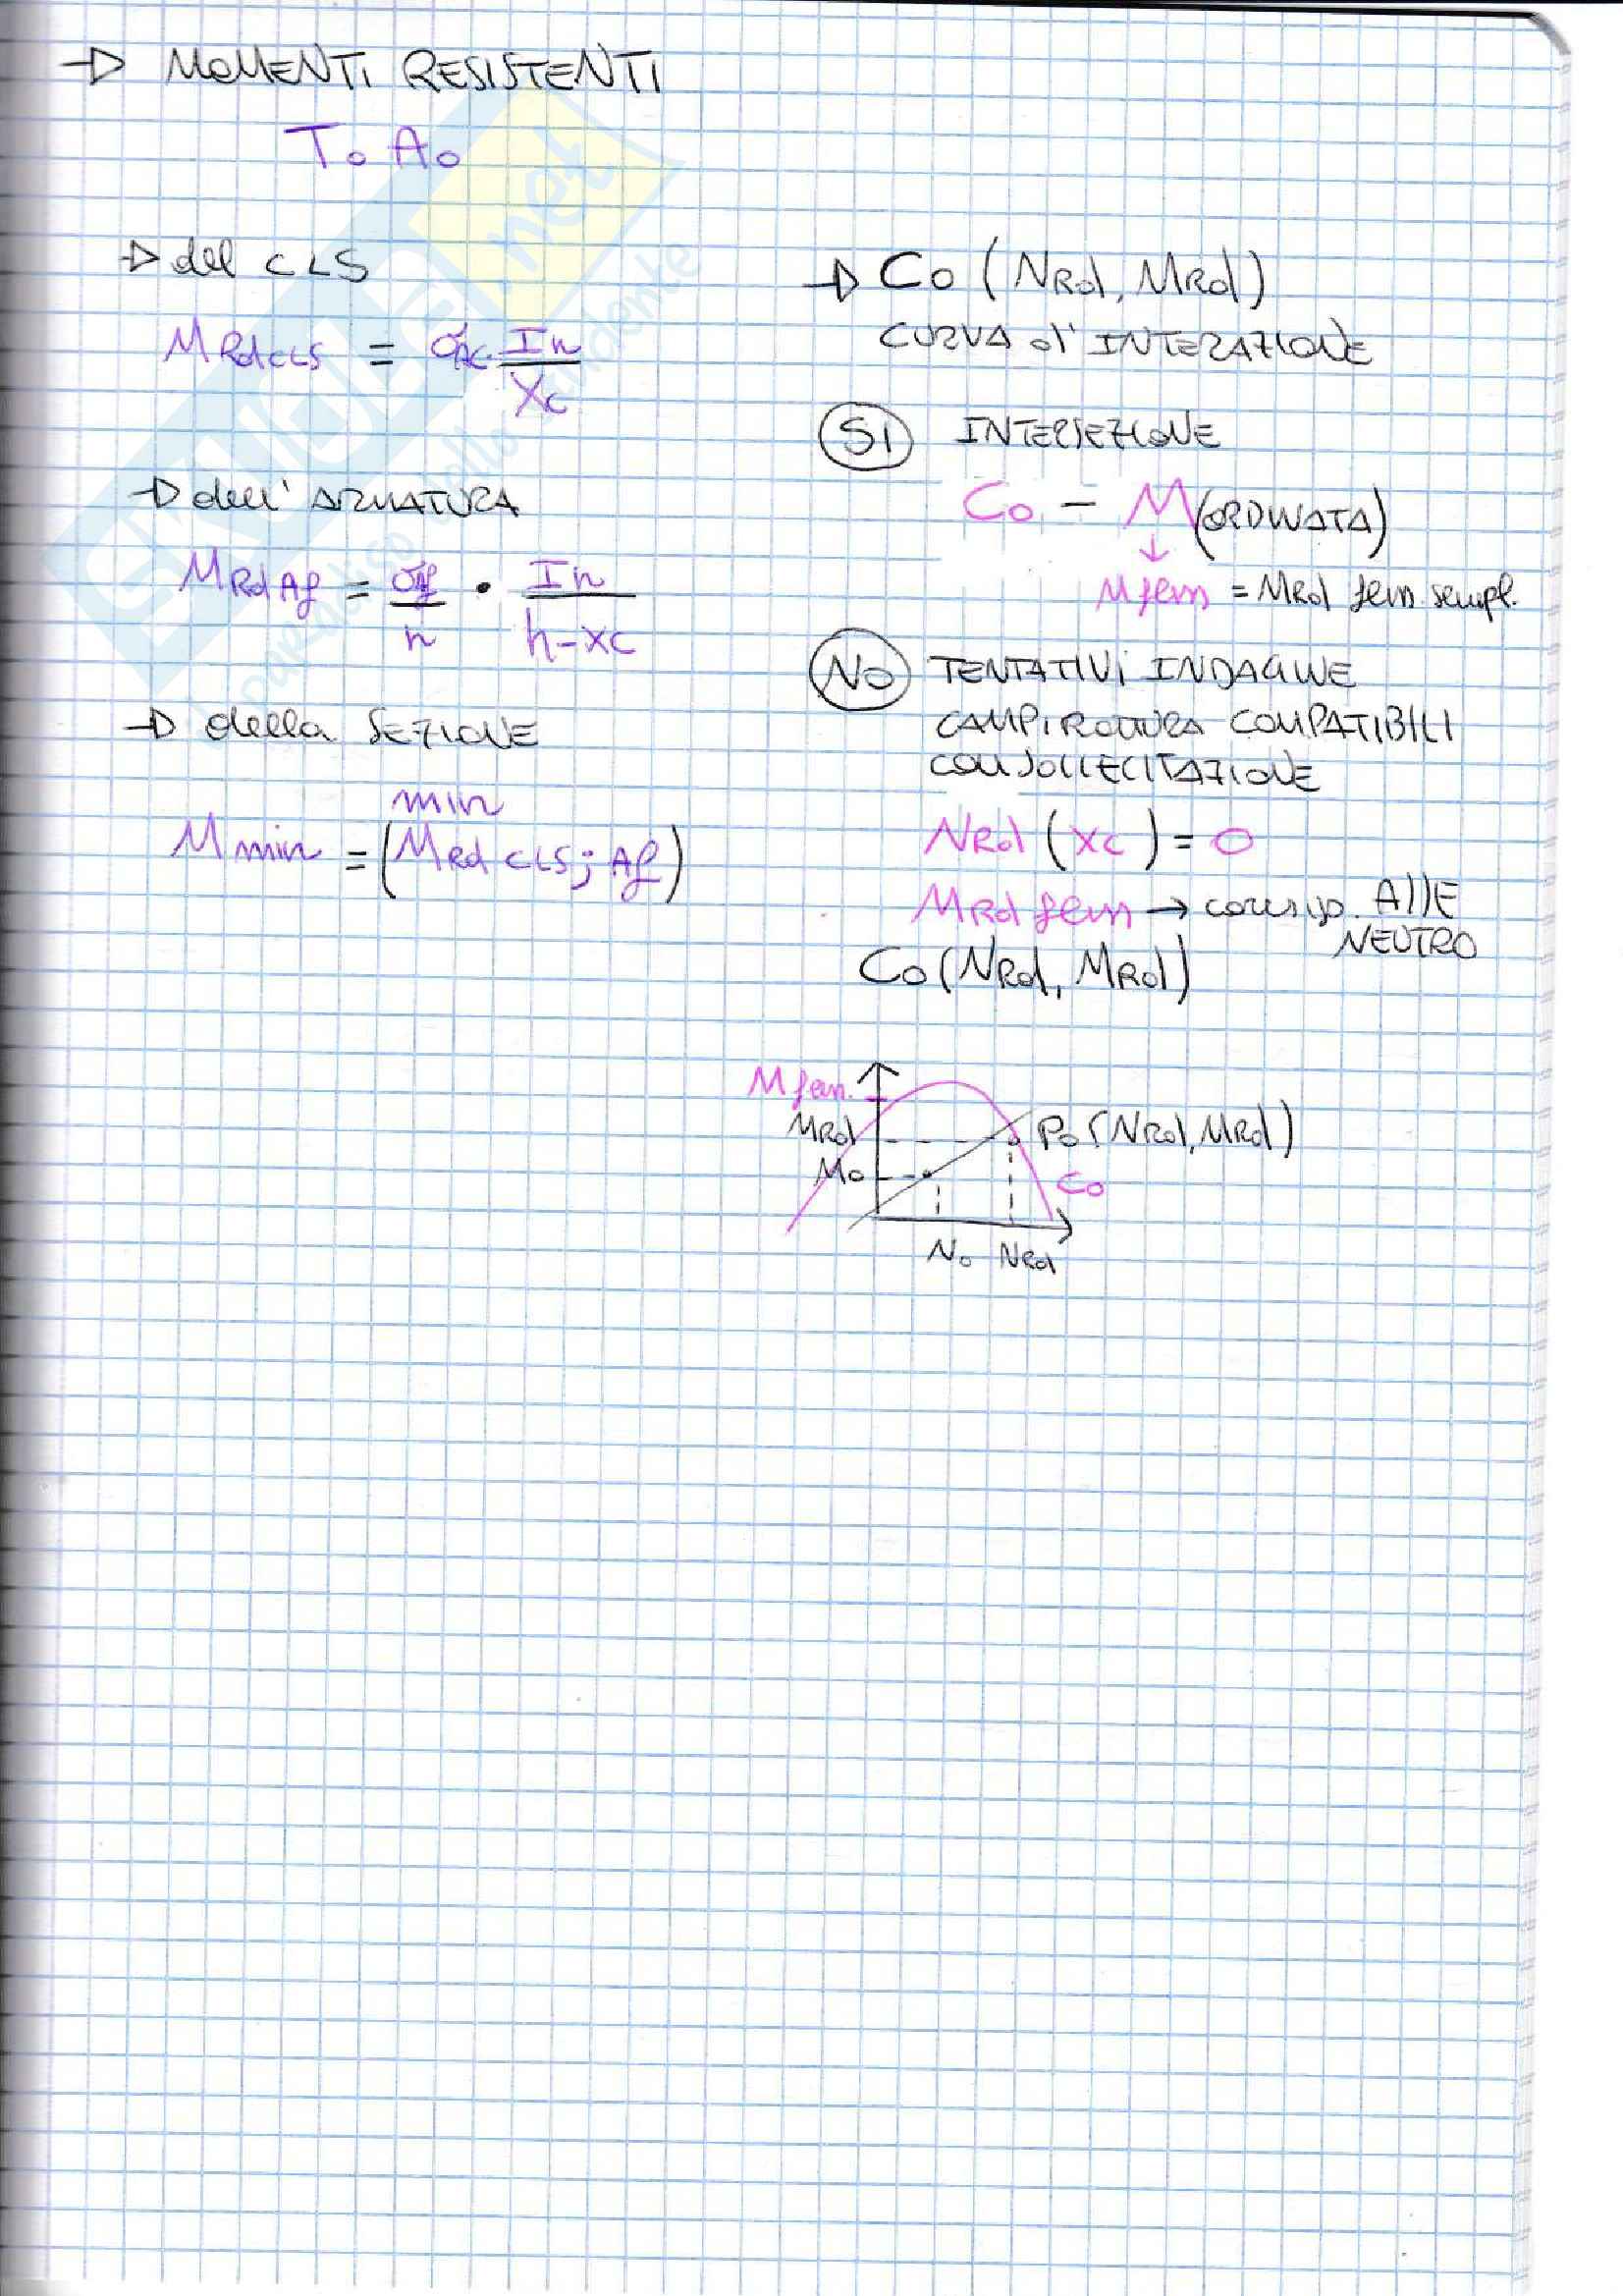 → MOMENTI RESISTENTI
T. A.
→ del CLS
MRd CLS = σ̄c · In / Xc
→ dell' ARMATURA
MRd Af = σ̄f / n · In / h-xc
→ della SEZIONE
min
M min = (MRd CLS; Af)
→ Co (NRd, MRd)
CURVA d' INTERAZIONE
SI INTERSEZIONE
Co - M (ORDINATA)
↓
M flem = MRd flem sempl.
NO TENTATIVI INDAGINE
CAMPI ROTTURA COMPATIBILI
CON SOLLECITAZIONE
NRd (xc) = 0
MRd flem → corrisp. ASSE
NEUTRO
Co (NRd, MRd)
M flem.
MRd
Po (NRd, MRd)
Mo
Co
No NRd
SKUOLA.net